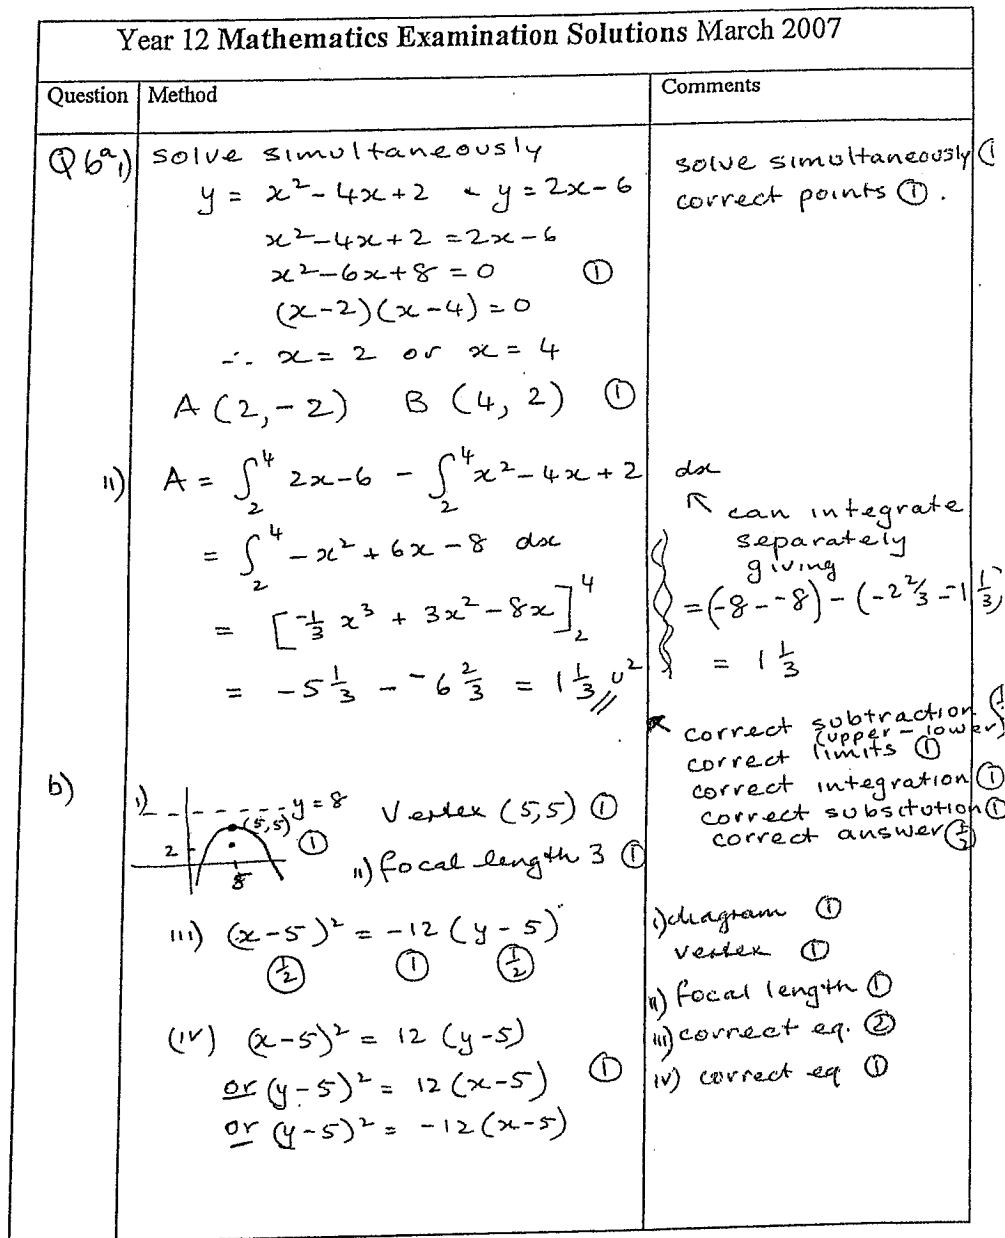 Year 12 Mathematics Examination Solutions March 2007
Question
Method
Comments
Q6a i)
solve simultaneously
y = x² - 4x + 2 & y = 2x - 6
x² - 4x + 2 = 2x - 6
x² - 6x + 8 = 0 ①
(x-2)(x-4) = 0
∴ x = 2 or x = 4
A (2, -2) B (4, 2) ①
solve simultaneously ①
correct points ①.
ii) A = ∫₂⁴ 2x-6 - ∫₂⁴ x² - 4x + 2 dx
= ∫₂⁴ -x² + 6x - 8 dx
= [-⅓x³ + 3x² - 8x]₂⁴
= -5⅓ - -6⅔ = 1⅓ u²
can integrate
separately
giving
= (-8 - -8) - (-2⅔ - -1⅓)
= 1⅓
correct subtraction
(upper - lower)
correct limits ①
correct integration ①
correct substitution ①
correct answer (½)
b)
i)
y = 8
(5,5)
2
5
①
Vertex (5,5) ①
ii) focal length 3 ①
iii) (x-5)² = -12(y-5)
(½) ① (½)
(iv) (x-5)² = 12(y-5)
or (y-5)² = 12(x-5) ①
or (y-5)² = -12(x-5)
i) diagram ①
vertex ①
ii) focal length ①
iii) correct eq. ②
iv) correct eq ①